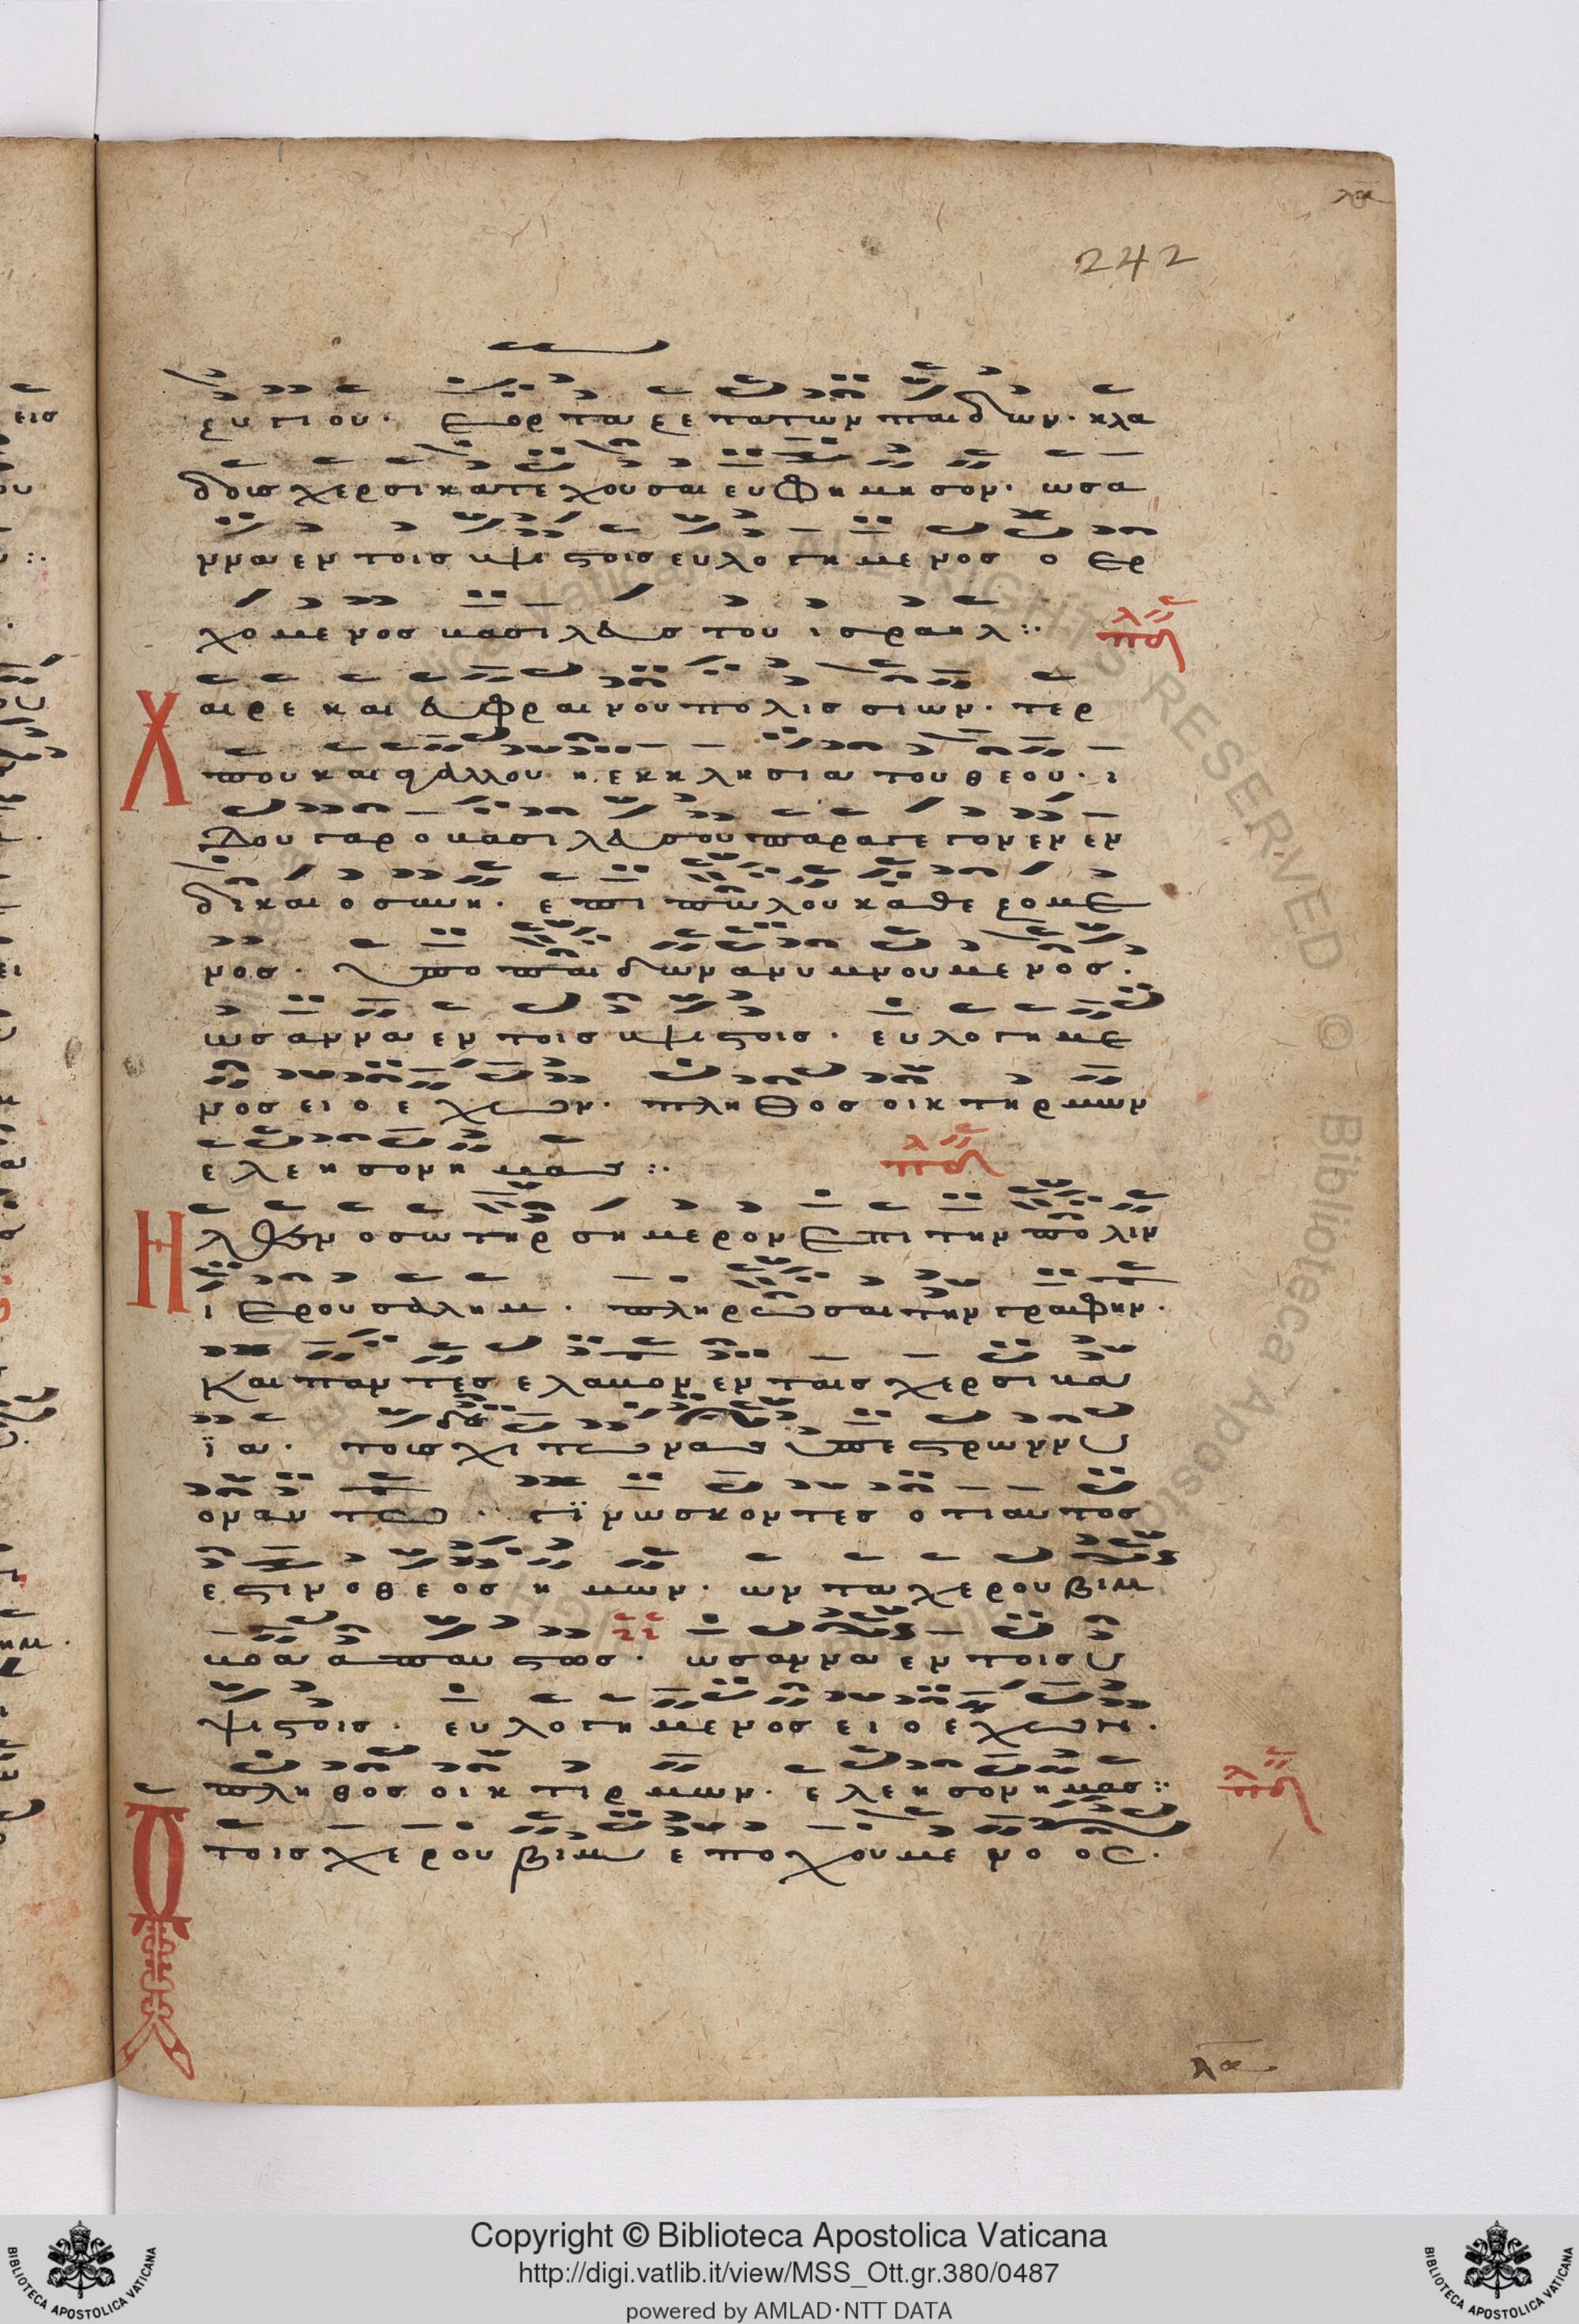 242
ξυ πι ου. Εορ τα ζε τα των παι δ ων. κλα
δοις χερσι κατε χου σαι ευ φη μη σον. ωσα
ννα εν τοις υψι στοις ευλο γη με νος ο Ερ
χο με νος βασι λευ σ του ισραηλ :.
Χ αιρε και ευ φραι νου πο λις σιων. τερ
που και αγαλλου η εκκλησι α του θεου. ι
Δου γαρ ο βασι λευ σου παραγε γονεν εν
δικαιο συνη. ε πι πω λου κα θε ζομε
νος. υ πο παι δων ανυ μνου με νος.
ωσαννα εν τοις υψι στοις. ευλο γη με
νος ει ο ε χων. πληθος οικ τηρ μων
ε λεη σον η μας :.
Η λθεν ο σω τηρ ση μερον Επι την πο λιν
ι Ερου σαλημ. πληρω σαι την γραφην.
Και παν τες ε λαβον εν ταις χερσι βα
ϊ α. τοις χι τω νας υπε στρωννυ
ον αυ τω. γϊ νωσκοντες ο τι αυ τος
ε στιν ο θε ος η μων. ων τα χερουβιμ
βοα α παυ στως. ωσαννα εν τοις υ
ψι στοις. ευ λο γη με νος ει ο ε χων.
πληθος οικ τιρ μων. ε λεη σον η μας :.
Ο τοις χε ρου βιμ ε πο χου με νο ος.
λα
Copyright © Biblioteca Apostolica Vaticana
http://digi.vatlib.it/view/MSS_Ott.gr.380/0487
powered by AMLAD·NTT DATA